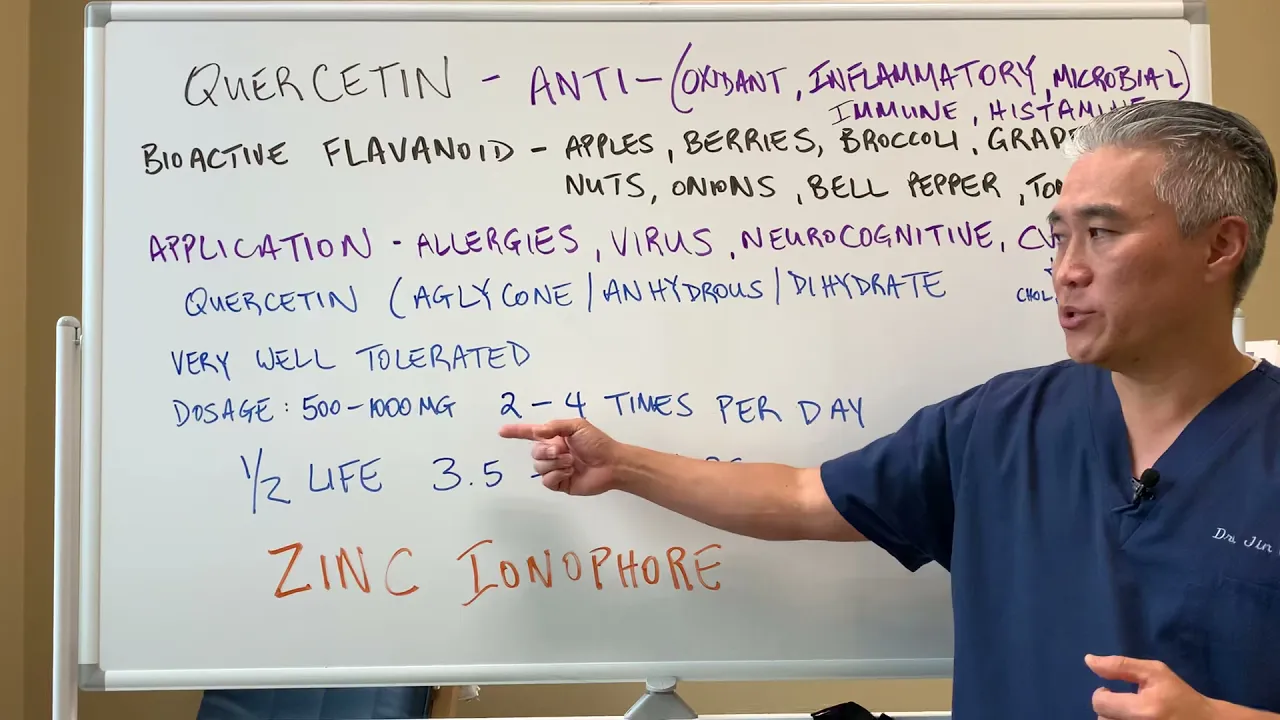 QUERCETIN - ANTI-(OXIDANT, INFLAMMATORY, MICROBIAL)
IMMUNE, HISTAMINE
BIOACTIVE FLAVANOID - APPLES, BERRIES, BROCCOLI, GRAPE
NUTS, ONIONS, BELL PEPPER,
APPLICATION - ALLERGIES, VIRUS, NEUROCOGNITIVE,
QUERCETIN (AGLYCONE/ANHYDROUS/DIHYDRATE
VERY WELL TOLERATED
DOSAGE: 500-1000MG 2-4 TIMES PER DAY
1/2 LIFE 3.5 -
ZINC IONOPHORE
Dr. Jin